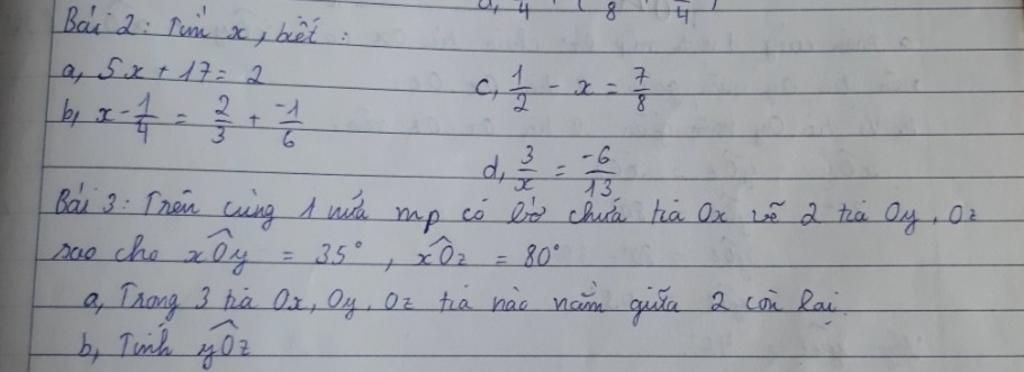 a, /4 ( /8 . /4 )
Bài 2: Tìm x, biết:
a, 5x + 17 = 2
c, 1/2 - x = 7/8
b, x - 1/4 = 2/3 + -1/6
d, 3/x = -6/13
Bài 3: Trên cùng 1 nửa mp có bờ chứa tia Ox vẽ 2 tia Oy, Oz
sao cho xÔy = 35°, xÔz = 80°
a, Trong 3 tia Ox, Oy, Oz tia nào nằm giữa 2 còn lại.
b, Tính yÔz